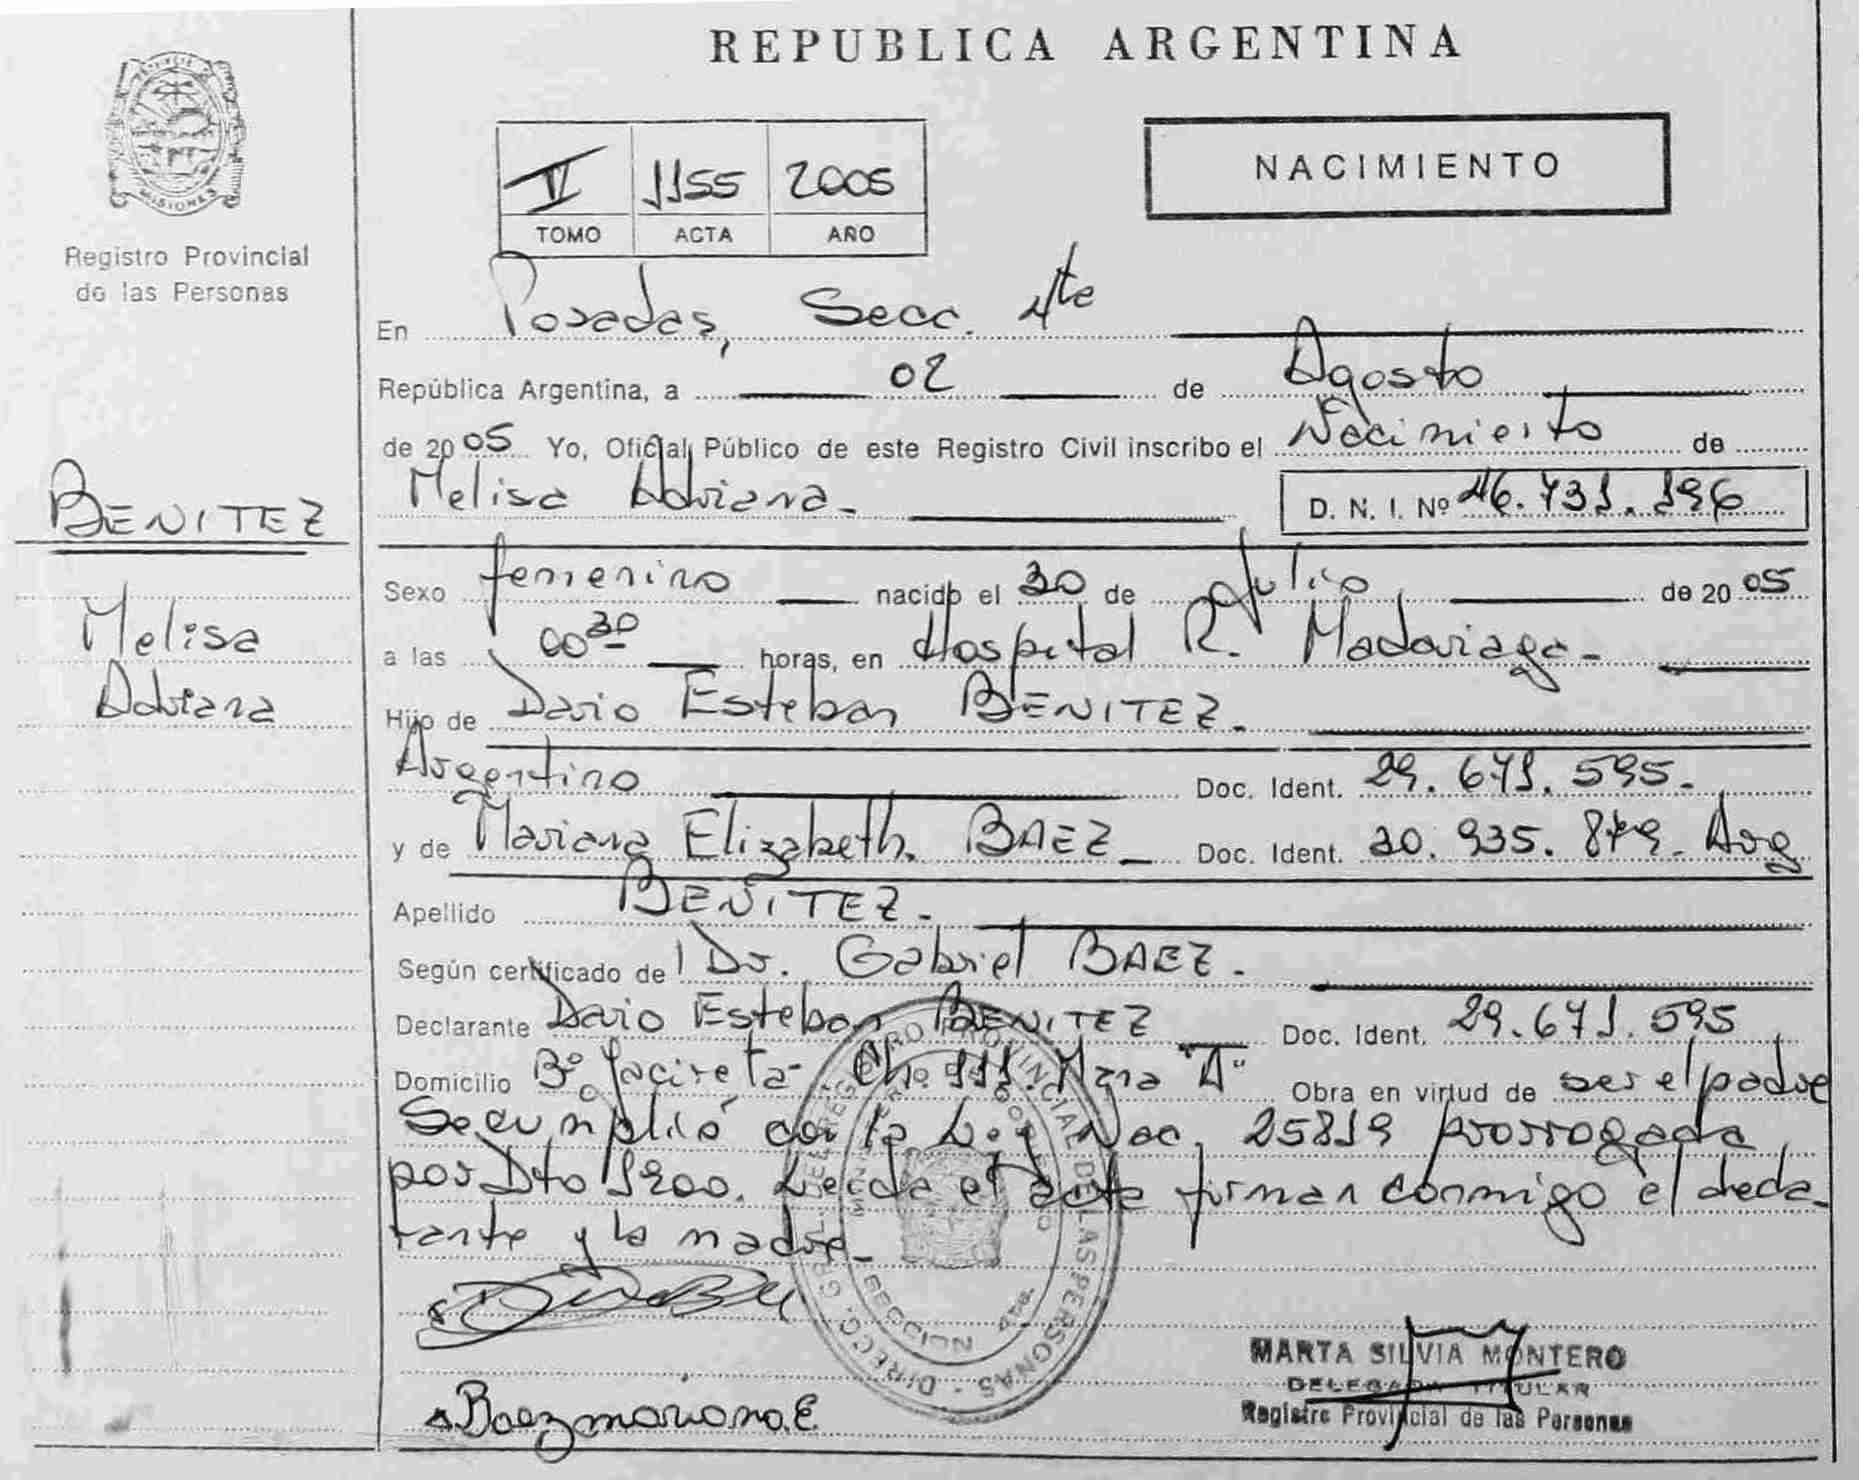 REPUBLICA ARGENTINA
MISIONES
Registro Provincial
de las Personas
II 1155 2005
TOMO ACTA AÑO
NACIMIENTO
En Posadas, Secc. 4te
República Argentina, a 02 de Agosto
de 2005 Yo, Oficial Público de este Registro Civil inscribo el Nacimiento de
Melisa Adriana.- D. N. I. Nº 46.731.196
BENITEZ
Melisa
Adriana
Sexo femenino nacido el 30 de Julio de 2005
a las 00 30 horas, en Hospital R. Madariaga-
Hijo de Dario Esteban BENITEZ.-
Argentino Doc. Ident. 29.671.595.-
y de Mariana Elizabeth. BAEZ- Doc. Ident. 30.935.879. Arg
Apellido BENITEZ.-
Según certificado de Dr. Gabriel BAEZ.-
Declarante Dario Esteban BENITEZ Doc. Ident. 29.671.595
Domicilio Bº Yacireta- Ch. 111. Mzna "A" Obra en virtud de ser el padre
Se cumplió con la Ley Nac. 25819 prorrogada
por Dto 1900. Leida el acta firman conmigo el decla-
rante y la madre-
DIRECC. GRAL. DEL REGISTRO PROVINCIAL DE LAS PERSONAS
SECCION 4ta.
Baez mariana.E
MARTA SILVIA MONTERO
DELEGADA TITULAR
Registro Provincial de las Personas